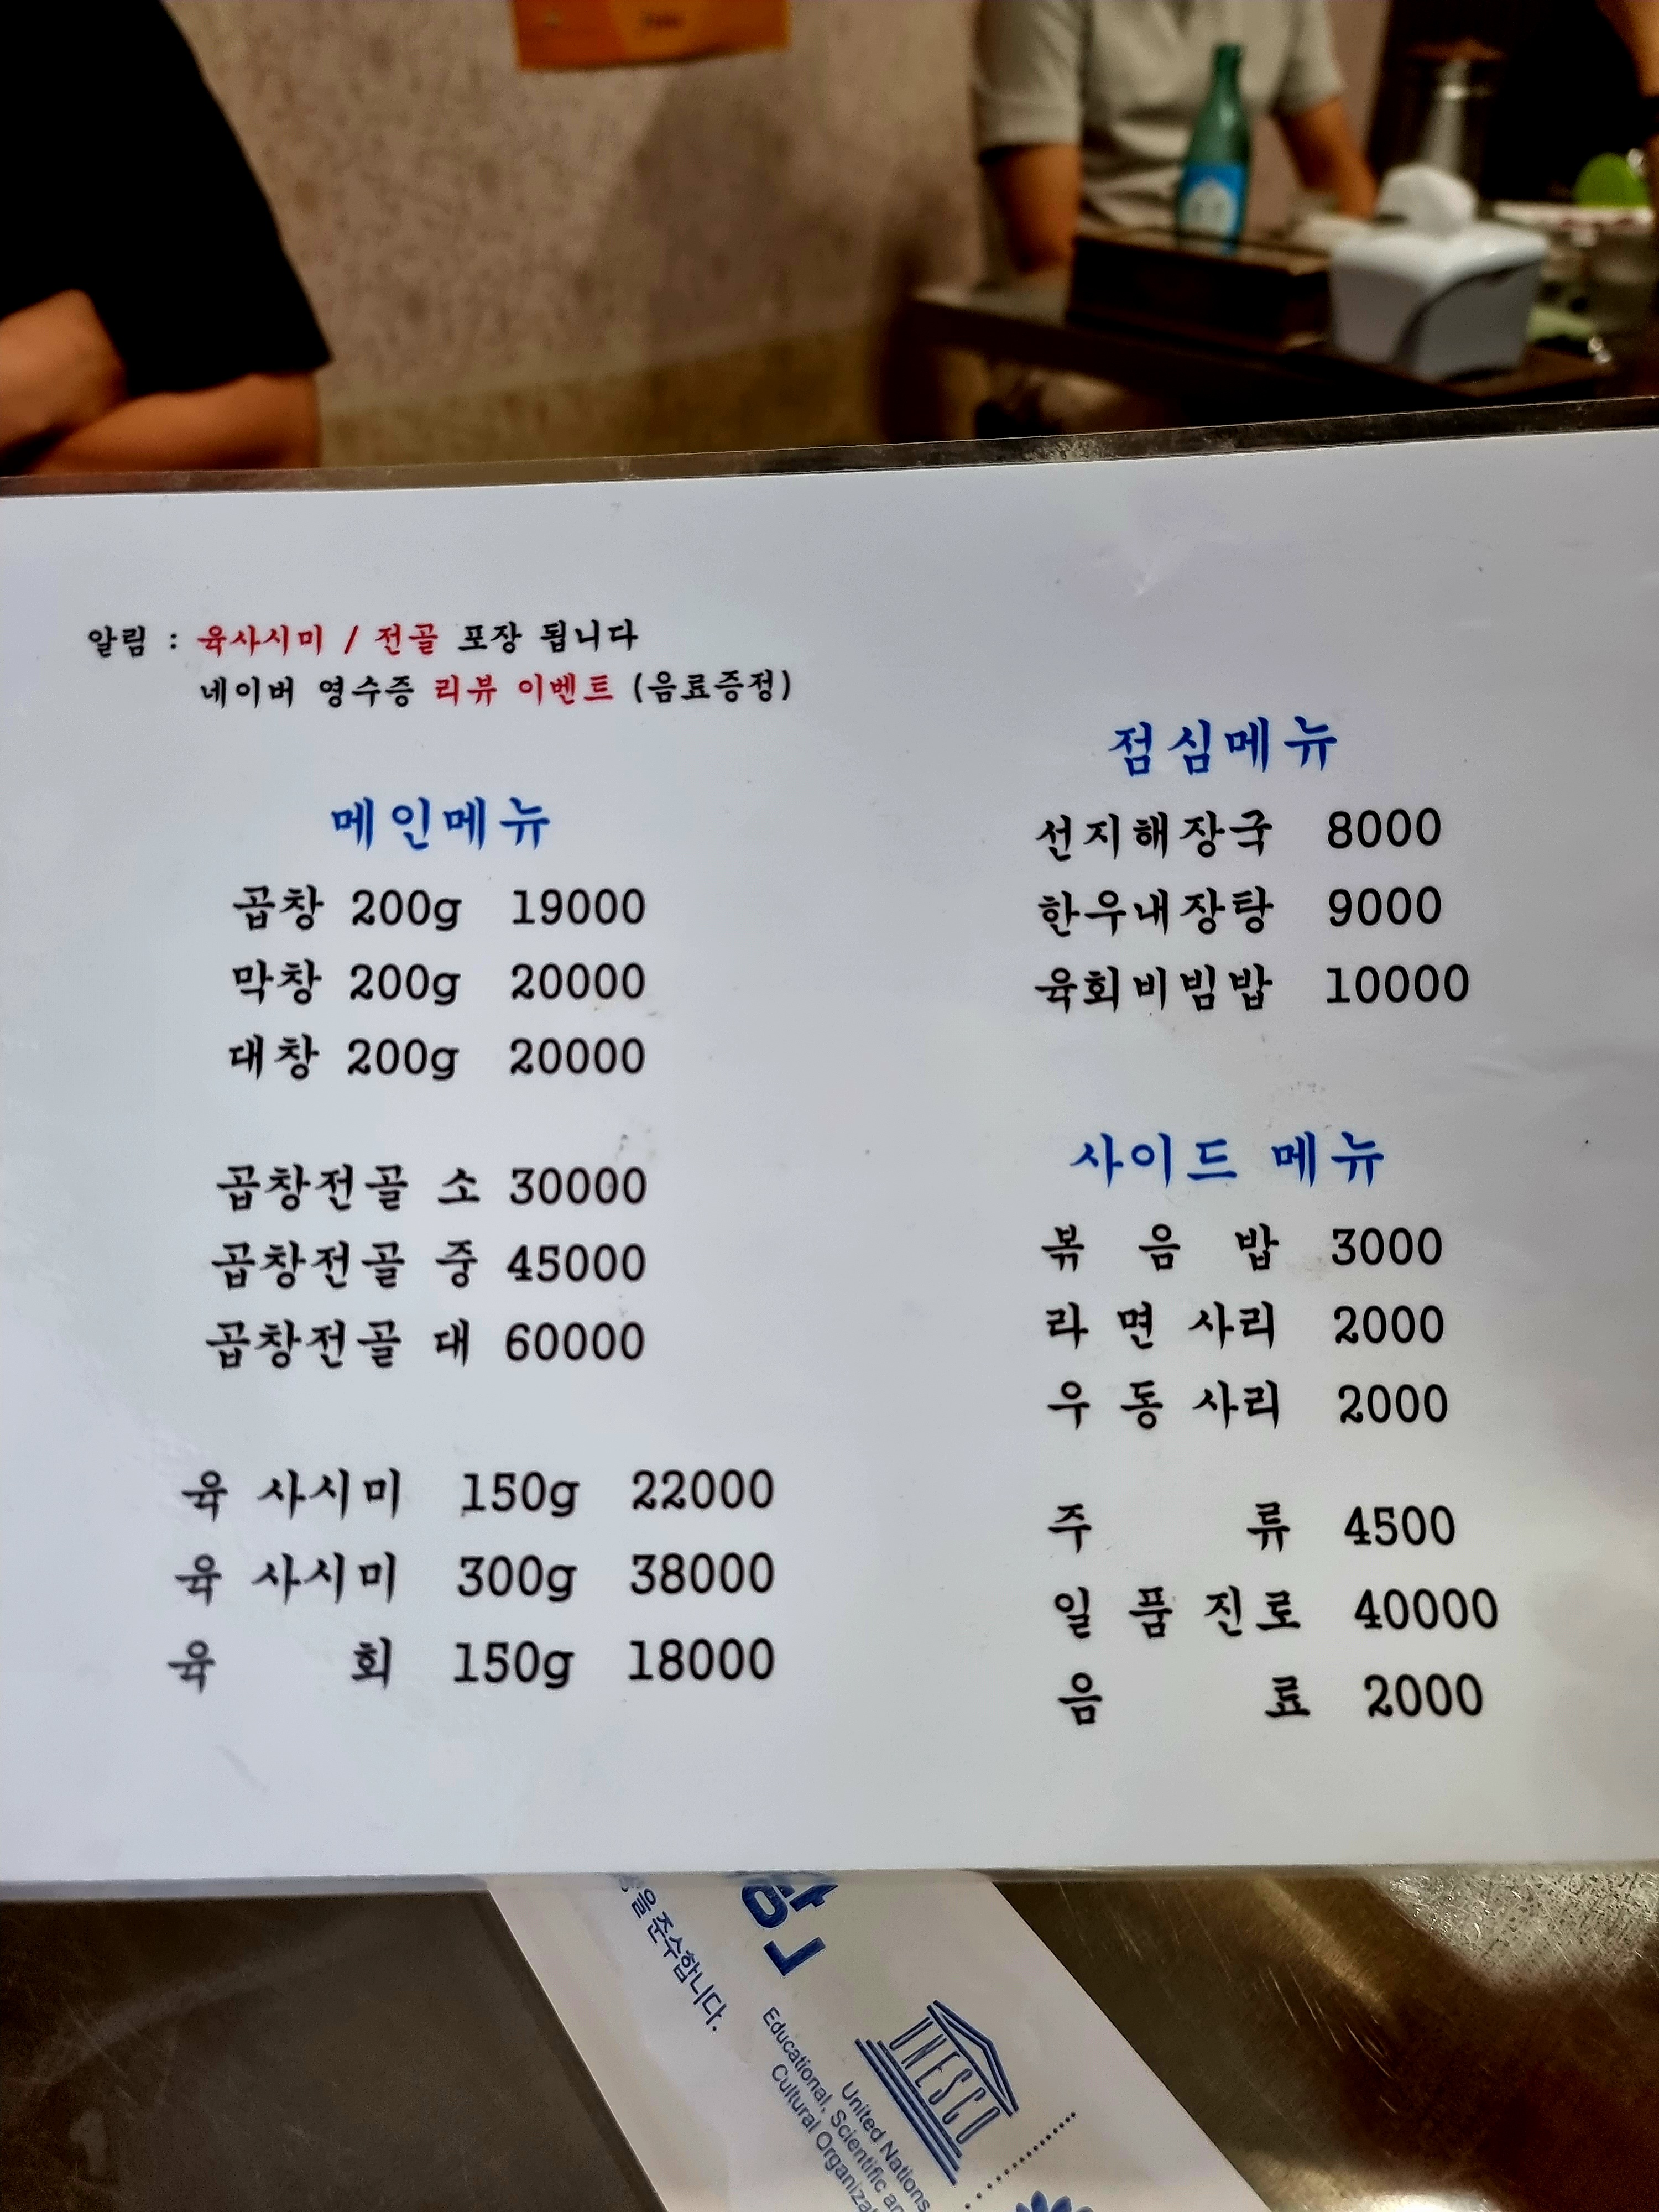 알림 : 육사시미 / 전골 포장 됩니다
네이버 영수증 리뷰 이벤트 (음료증정)
메인메뉴
곱창 200g 19000
막창 200g 20000
대창 200g 20000
곱창전골 소 30000
곱창전골 중 45000
곱창전골 대 60000
육 사시미 150g 22000
육 사시미 300g 38000
육 회 150g 18000
점심메뉴
선지해장국 8000
한우내장탕 9000
육회비빔밥 10000
사이드 메뉴
볶 음 밥 3000
라 면 사리 2000
우 동 사리 2000
주 류 4500
일 품 진로 40000
음 료 2000
준수합니다.
UNESCO
United Nations
Educational, Scientific
Cultural